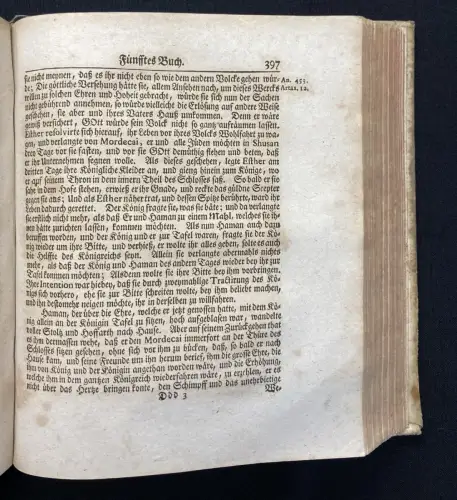 Fünfftes Buch. 397
sie nicht meynen, daß es ihr nicht eben so wie dem andern Volcke gehen wür- An. 453.
de; Die göttliche Versehung hätte sie, allem Ansehen nach, um dieses Wercks Artax. 12.
willen zu solchen Ehren und Hoheit gebracht, würde sie sich nun der Sachen
nicht gebührend annehmen, so würde vielleicht die Erlösung auf andere Weise
geschehen, sie aber und ihres Vaters Hauß umkommen. Denn er wäre
gewiß versichert, GOtt würde sein Volck nicht so gantz aufräumen lassen.
Esther resolvirte sich hierauf, ihr Leben vor ihres Volcks Wohlfahrt zu wa-
gen, und verlangte von Mordecai, er und alle Jüden möchten in Shusan
drey Tage vor sie fasten, und vor sie GOtt demüthig flehen und beten, daß
er ihr Unternehmen segnen wolle. Als dieses geschehen, legte Esther am
dritten Tage ihre Königliche Kleider an, und gieng hinein zum Könige, wo
er auf seinem Thron in dem innern Theil des Schlosses saß. So bald er sie
sahe in dem Hofe stehen, erwieß er ihr Gnade, und reckte das güldne Scepter
gegen sie aus; Und als Esther näher trat, und dessen Spitze berührte, ward ihr
Leben dadurch gerettet. Der König fragte sie, was sie bäte; und da verlangte
sie erstlich nicht mehr, als daß Er und Haman zu einem Mahl, welches sie ih-
nen hätte zurichten lassen, kommen möchten. Als nun Haman auch dazu
beruffen worden, und der König und er zur Tafel waren, fragte sie der Kö-
nig wieder um ihre Bitte, und verhieß, er wolte ihr alles geben, solte es auch
die Hälffte des Königreichs seyn. Allein sie verlangte abermahls nichts
mehr, als daß der König und Haman des andern Tages wieder bey ihr zur
Tafel kommen möchten; Alsdenn wolte sie ihre Bitte bey ihm vorbringen.
Ihre Intention war hiebey, daß sie durch zweymahlige Tractirung des Kö-
nigs sich vorhero, ehe sie zur Bitte schreiten wolte, bey ihm beliebt machen,
und ihn destomehr neigen möchte, ihr in derselben zu willfahren.
Haman, der über die Ehre, welche er jetzt genossen hatte, mit dem Kö-
nig allein an der Königin Tafel zu sitzen, hoch aufgeblasen war, wandelte
voller Stoltz und Hoffarth nach Hause. Aber auf seinem Zurückgehen that
es ihm dermassen wehe, daß er den Mordecai immerfort an der Thüre des
Schlosses sitzen gesehen, ohne sich vor ihm zu bücken, daß, so bald er nach
Hauß kam, und seine Freunde um ihn herum berief, ihm die grosse Ehre, die
ihm von König und der Königin angethan worden wäre, und die Erhöhung,
welche ihm in dem gantzen Königreich wiederfahren wäre, zu erzehlen, er es
nicht über das Hertze bringen konte, den Schimpff und das unehrbietige
Ddd 3 We,